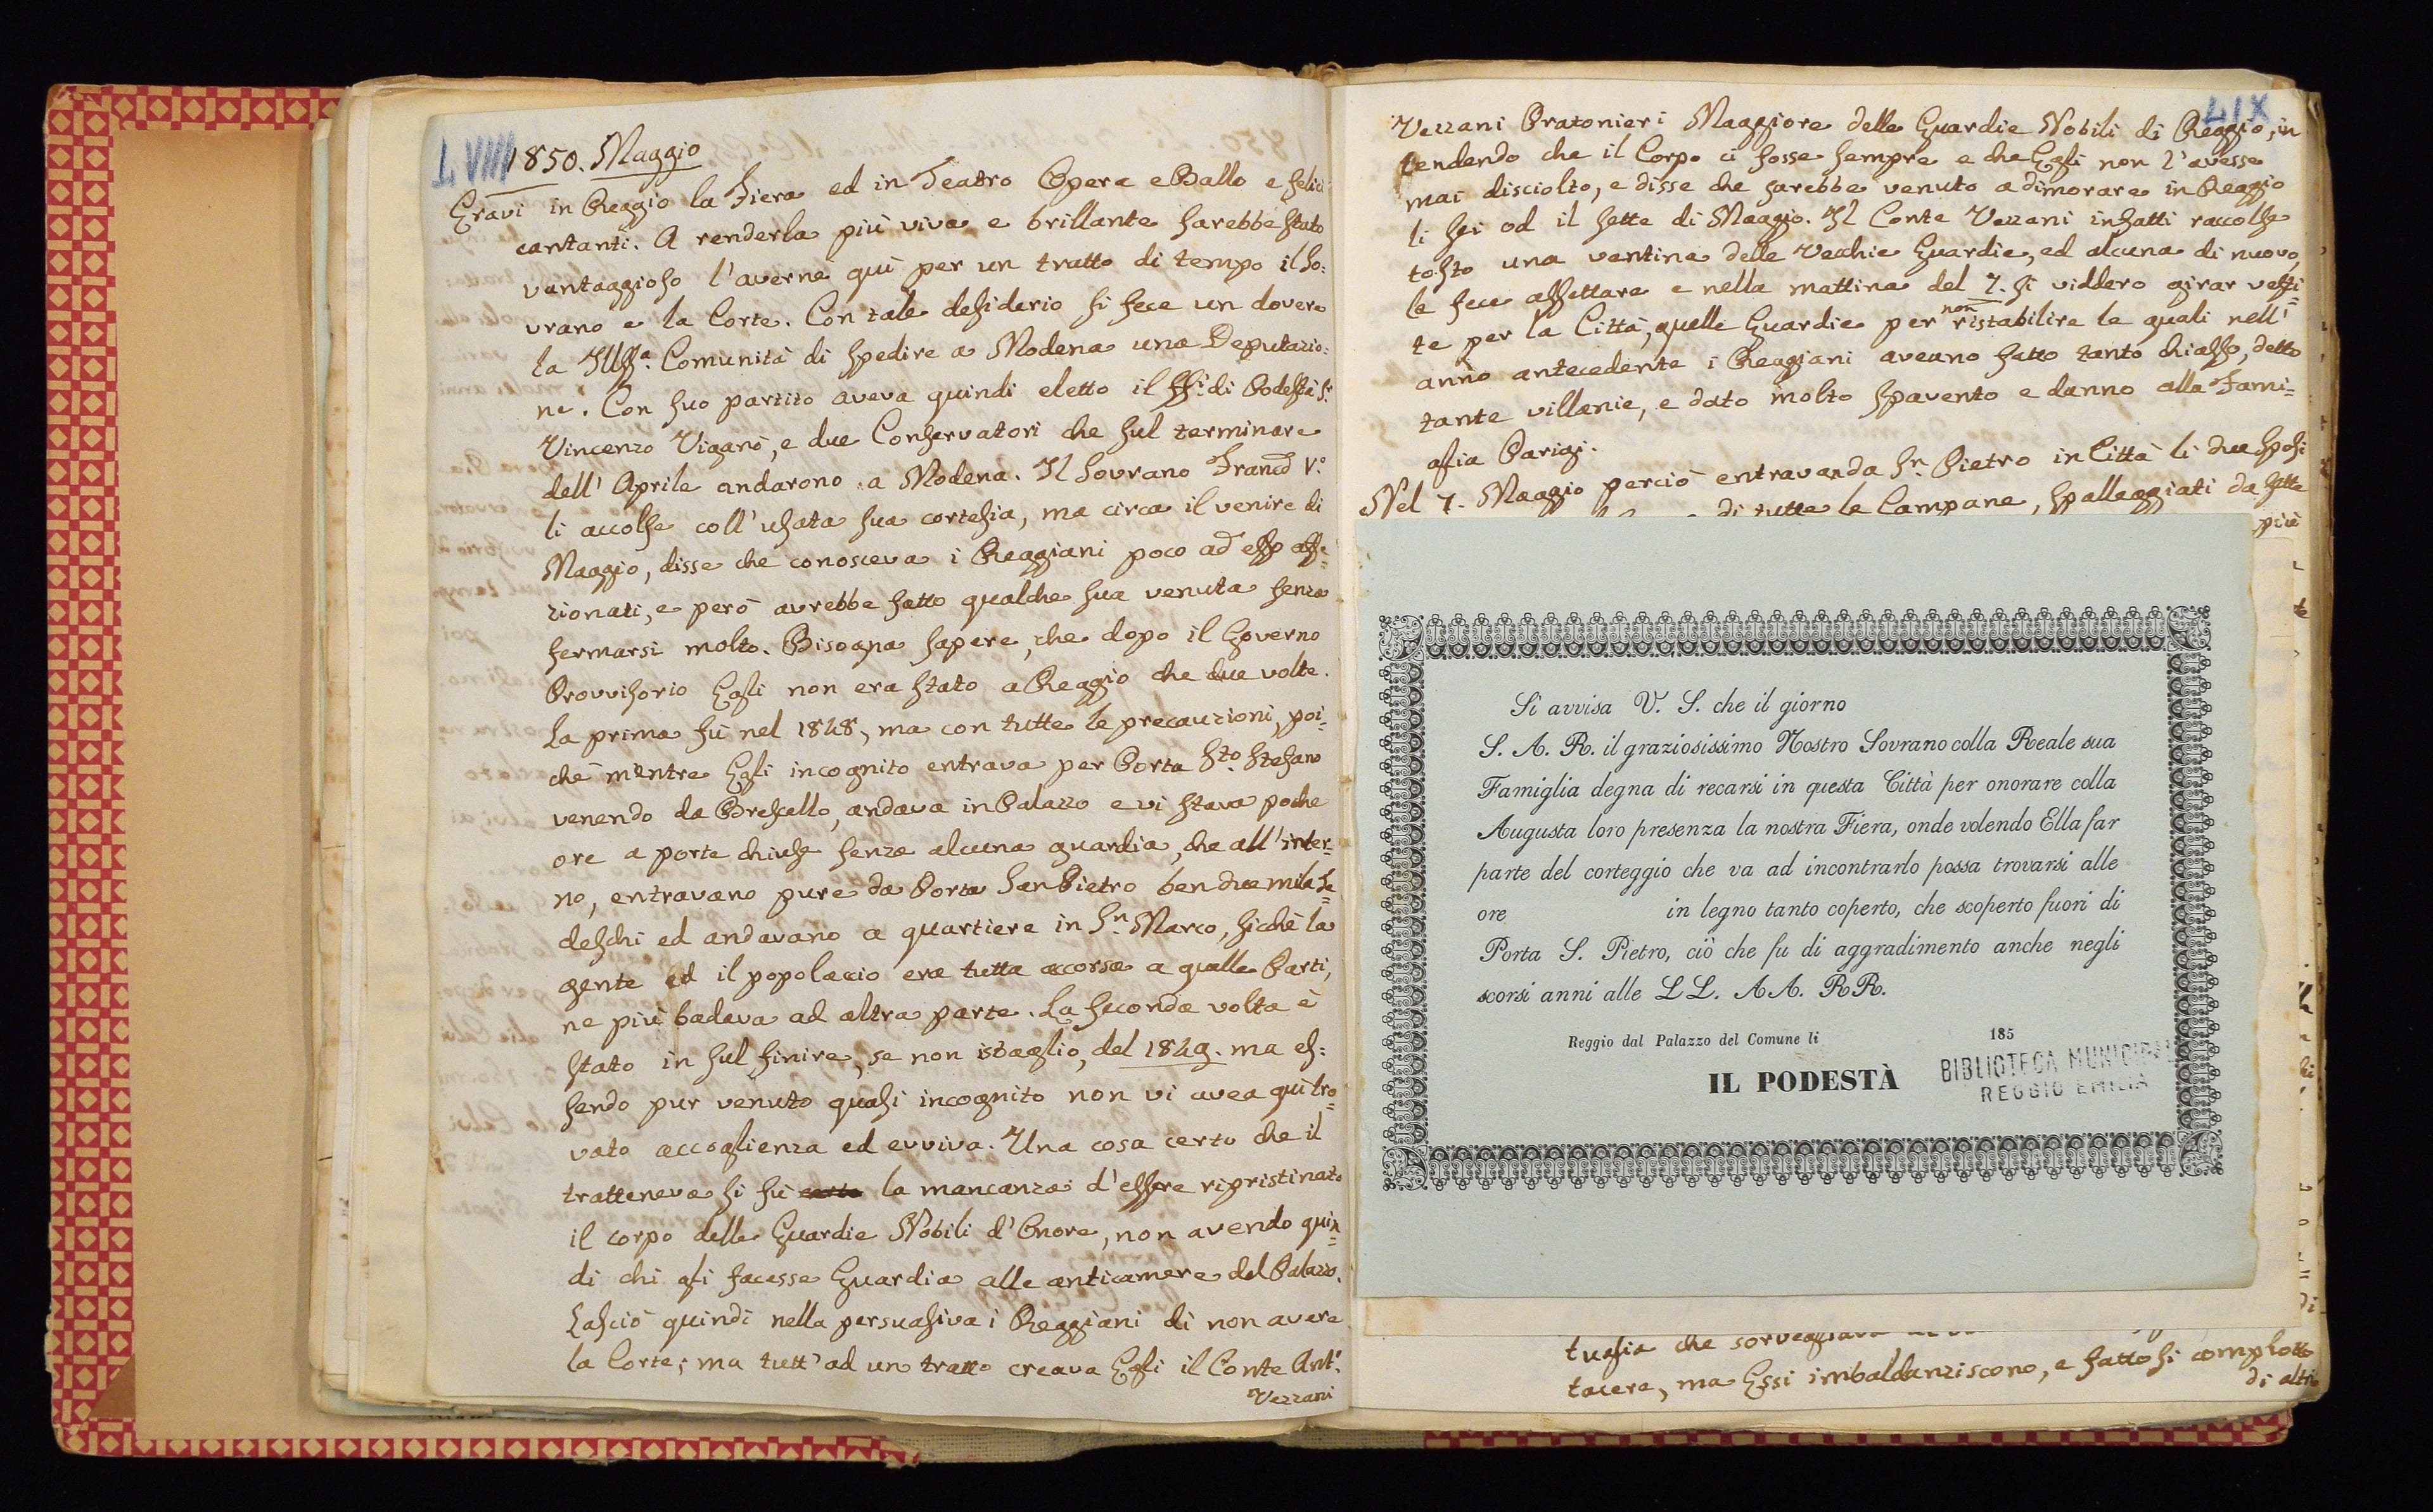 LVIIII 1850. Maggio
Eravi in Reggio la Fiera ed in Teatro Opera e Ballo e felici
cantanti. A renderla più viva e brillante sarebbe stato
vantaggioso l'averne quì per un tratto di tempo il So=
vrano e la Corte. Con tale desiderio si fece un dovere
la Illssa. Comunità di spedire a Modena una Deputazio=
ne. Con suo partito aveva quindi eletto il ff. di Podestà Sr.
Vincenzo Viganò, e due Conservatori che sul terminare
dell' Aprile andarono a Modena. Il Sovrano Francò Vº.
li accolse coll'usata sua cortesia, ma circa il venire di
Maggio, disse che conosceva i Reggiani poco ad esso affe=
zionati, e però avrebbe fatto qualche sua venuta senza
fermarsi molto. Bisogna sapere, che dopo il Governo
Provvisorio Egli non era stato a Reggio che due volte.
La prima fù nel 1848, ma con tutte le precauzioni, poi=
chè mentre Egli incognito entrava per Porta Sto. Stefano
venendo da Brescello, andava in Palazzo e vi stava poche
ore a porte chiuse senza alcuna guardia, che all'inter=
no, entravano pure da Porta San Pietro ben due mila te=
deschi ed andavano a quartiere in Sn. Marco, sicchè la
gente ed il popolaccio era tutta accorsa a quelle Parti,
ne più badava ad altra parte. La seconda volta è
stato in sul finire, se non isbaglio, del 1849. ma es=
sendo pur venuto quasi incognito non vi avea quì tro=
vato accoglienza ed evviva. Una cosa certo che il
tratteneva si fù la mancanza d'essere ripristinato
il corpo delle Guardie Nobili d'Onore, non avendo quin=
di chi gli facesse Guardia alle anticamere del Palazzo.
Lasciò quindi nella persuasiva i Reggiani di non avere
la Corte; ma tutt'ad un tratto creava Egli il Conte Ant.
Vezzani
LIX
Vezzani Pratonieri Maggiore delle Guardie Nobili di Reggio, in
tendendo che il Corpo ci fosse sempre e che Egli non l'avesse
mai disciolto, e disse che sarebbe venuto a dimorare in Reggio
li sei od il sette di Maggio. Il Conte Vezzani infatti raccolse
tosto una ventina delle Vecchie Guardie, ed alcuna di nuovo,
le fece assettare e nella mattina del 7. si viddero girar vesti=
te per la Città, quelle Guardie per non ristabilire le quali nell'
anno antecedente i Reggiani aveano fatto tanto chiasso, detto
tante villanie, e dato molto spavento e danno alla Fami=
glia Parigi.
Nel 7. Maggio perciò entravan da Sn. Pietro in Città li due Sposi
di tutte le Campane, spalleggiati da sette
più
Si avvisa V. S. che il giorno
S. A. R. il graziosissimo Nostro Sovrano colla Reale sua
Famiglia degna di recarsi in questa Città per onorare colla
Augusta loro presenza la nostra Fiera, onde volendo Ella far
parte del corteggio che va ad incontrarlo possa trovarsi alle
ore in legno tanto coperto, che scoperto fuori di
Porta S. Pietro, ciò che fu di aggradimento anche negli
scorsi anni alle LL. AA. RR.
Reggio dal Palazzo del Comune li 185
IL PODESTÀ
BIBLIOTECA MUNICIPALE
REGGIO EMILIA
che
tacere, ma Essi imbaldanziscono, e fattosi complotto
di altri